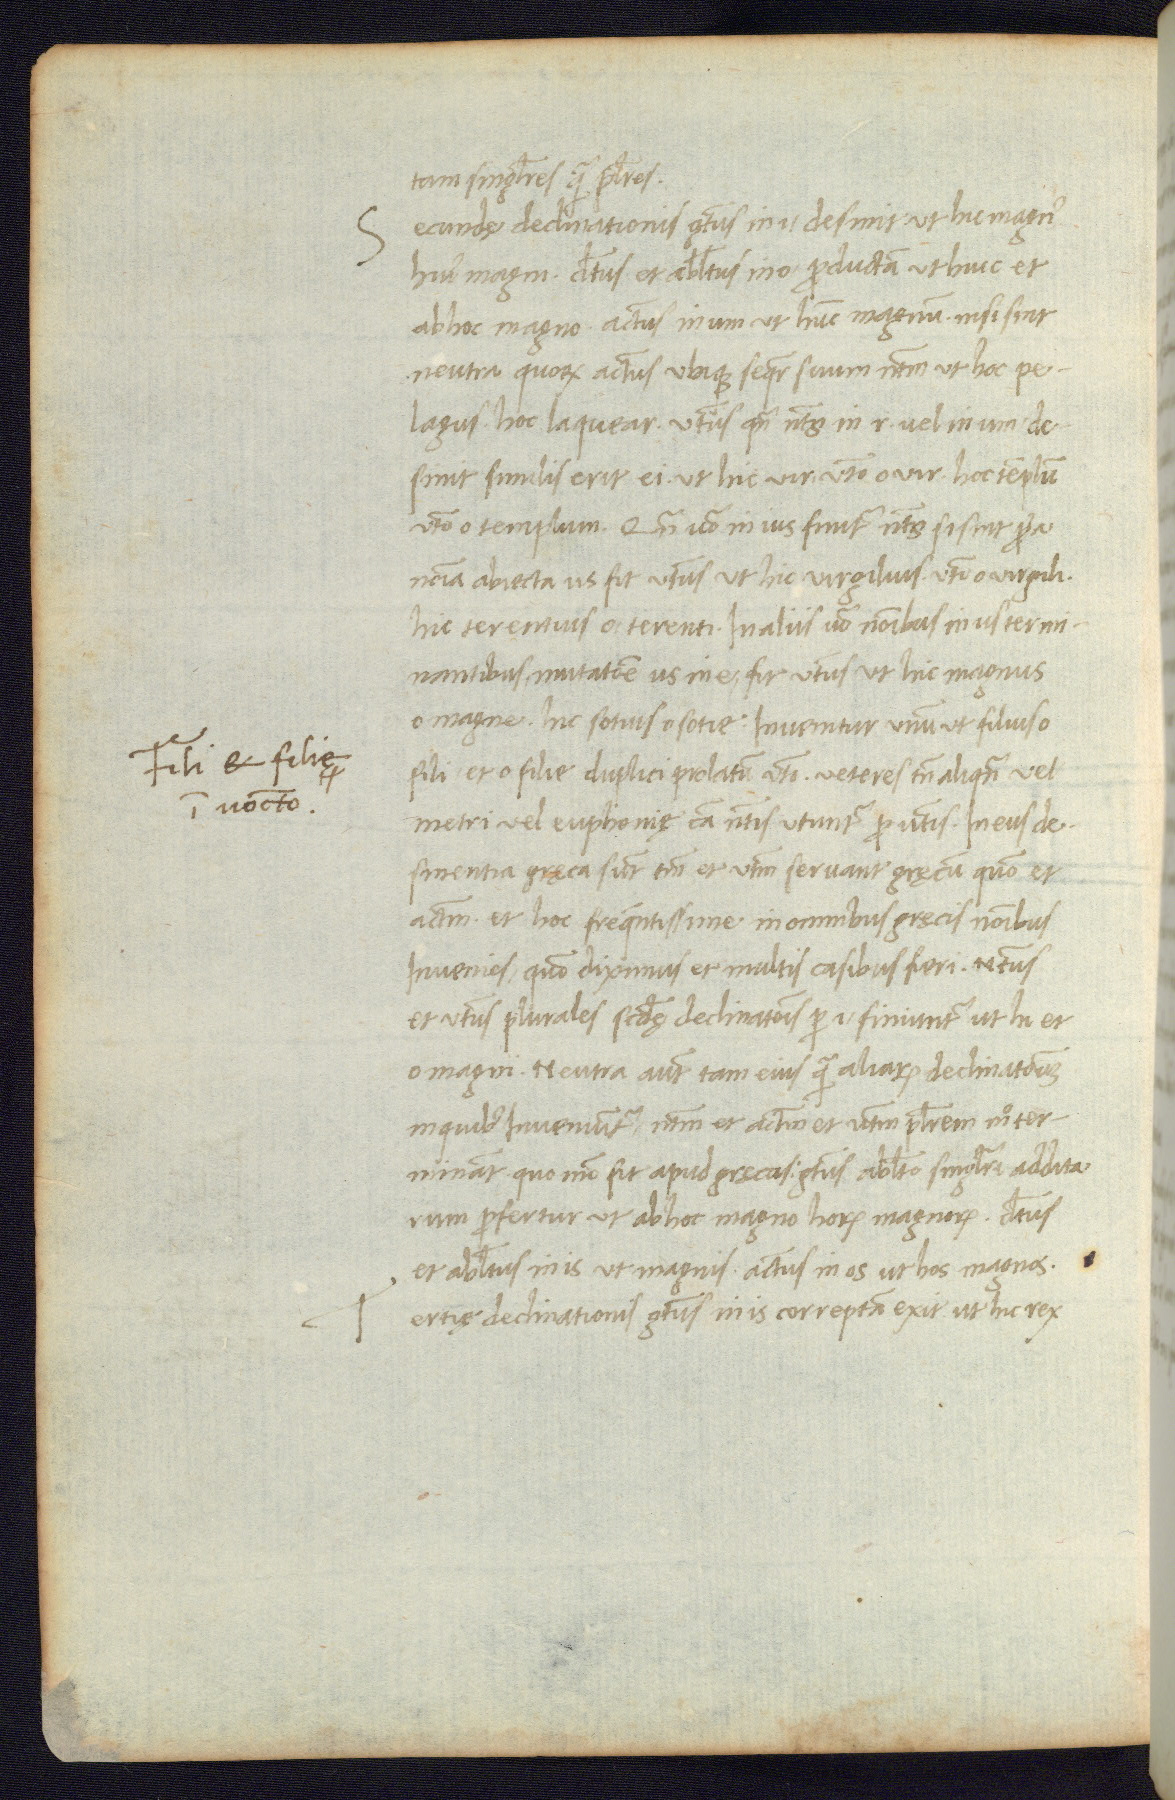 tam singl̃res q̃ pl̃res.
Secundę declinationis gt̃us in i desinit ut hic magnꝰ
huiꝰ magni. dt̃us et abl̃tus in o productã ut huic et
ab hoc magno. act̃us in um ut hũc magnũ. nisi sint
neutra quoꝝ act̃us ubiqꝫ seqr̃ suum nt̃m ut hoc pe-
lagus. hoc laquear. vt̃us qñ nt̃us in r. vel in um de-
sinit similis erit ei. ut hic vir. vt̃o o vir. hoc tẽplũ
vt̃o o templum. Qñ uo in ius finitr̃ nt̃us si sint ꝓpa
noĩa abiecta us fit vt̃us ut hic virgilius. vt̃o o virgili.
hic terentius o terenti. In aliis uo noĩbus in us termi-
nantibus, mutatiõe us in e, fit vt̃us ut hic magnus
o magne. hic sotius o sotie. Invenitur unũ ut filius o
fili et o filie duplici prolatũ vt̃i. veteres tñ aliqñ vel
metri vel euphonię cã nt̃is utuntr̃ ꝓ vt̃is. In eus de-
sinentia gręca sũt tñ et vt̃m servant gręcũ quõ et
act̃m. et hoc freq̃ntissime in omnibus gręcis noĩbus
Invenies, quõ diximus et multis casibus fieri. Nt̃us
et vt̃us plurales scd̃ę declinatiõis ꝑ i, finiuntr̃ ut hi et
o magni. Neutra aut̃ tam eius q̃ aliaꝝ declinatõnũ
in quibꝰ Inveniũtr̃ nt̃m et act̃m et vt̃m pl̃rem in a ter-
minãt quo mõ fit apud gręcos. gt̃us abl̃to singl̃ri addita
rum ꝓfertur ut ab hoc magno horꝝ magnorꝝ. dt̃us
et abl̃tus in is ut magnis. act̃us in os ut hos magnos.
Tertię declinationis gt̃us in is correptã exit ut hic rex
Fili & filie
ĩ uocto.